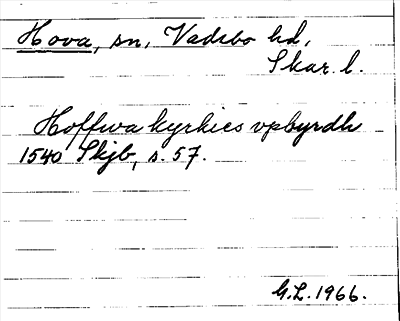 Hova, sn, Vadsbo hd,
Skar. l.
Hoffwa kyrkies vpbyrdh
1540 Skjb, s. 57.
G.L. 1966.